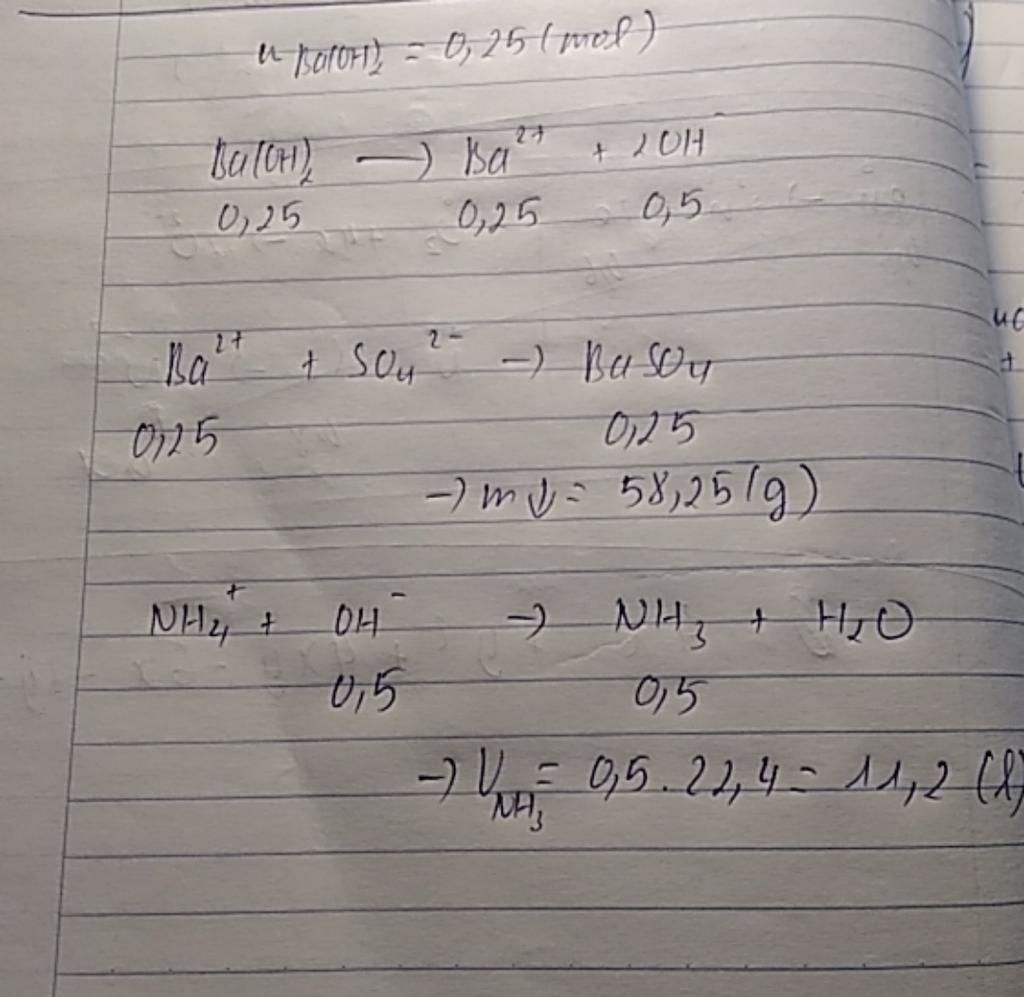 n Ba(OH)₂ = 0,25 (mol)
Ba(OH)₂ → Ba²⁺ + 2OH⁻
0,25 0,25 0,5
Ba²⁺ + SO₄²⁻ → BaSO₄
0,25 0,25
→ m↓ = 58,25 (g)
NH₄⁺ + OH⁻ → NH₃ + H₂O
0,5 0,5
→ V NH₃ = 0,5 . 22,4 = 11,2 (l)